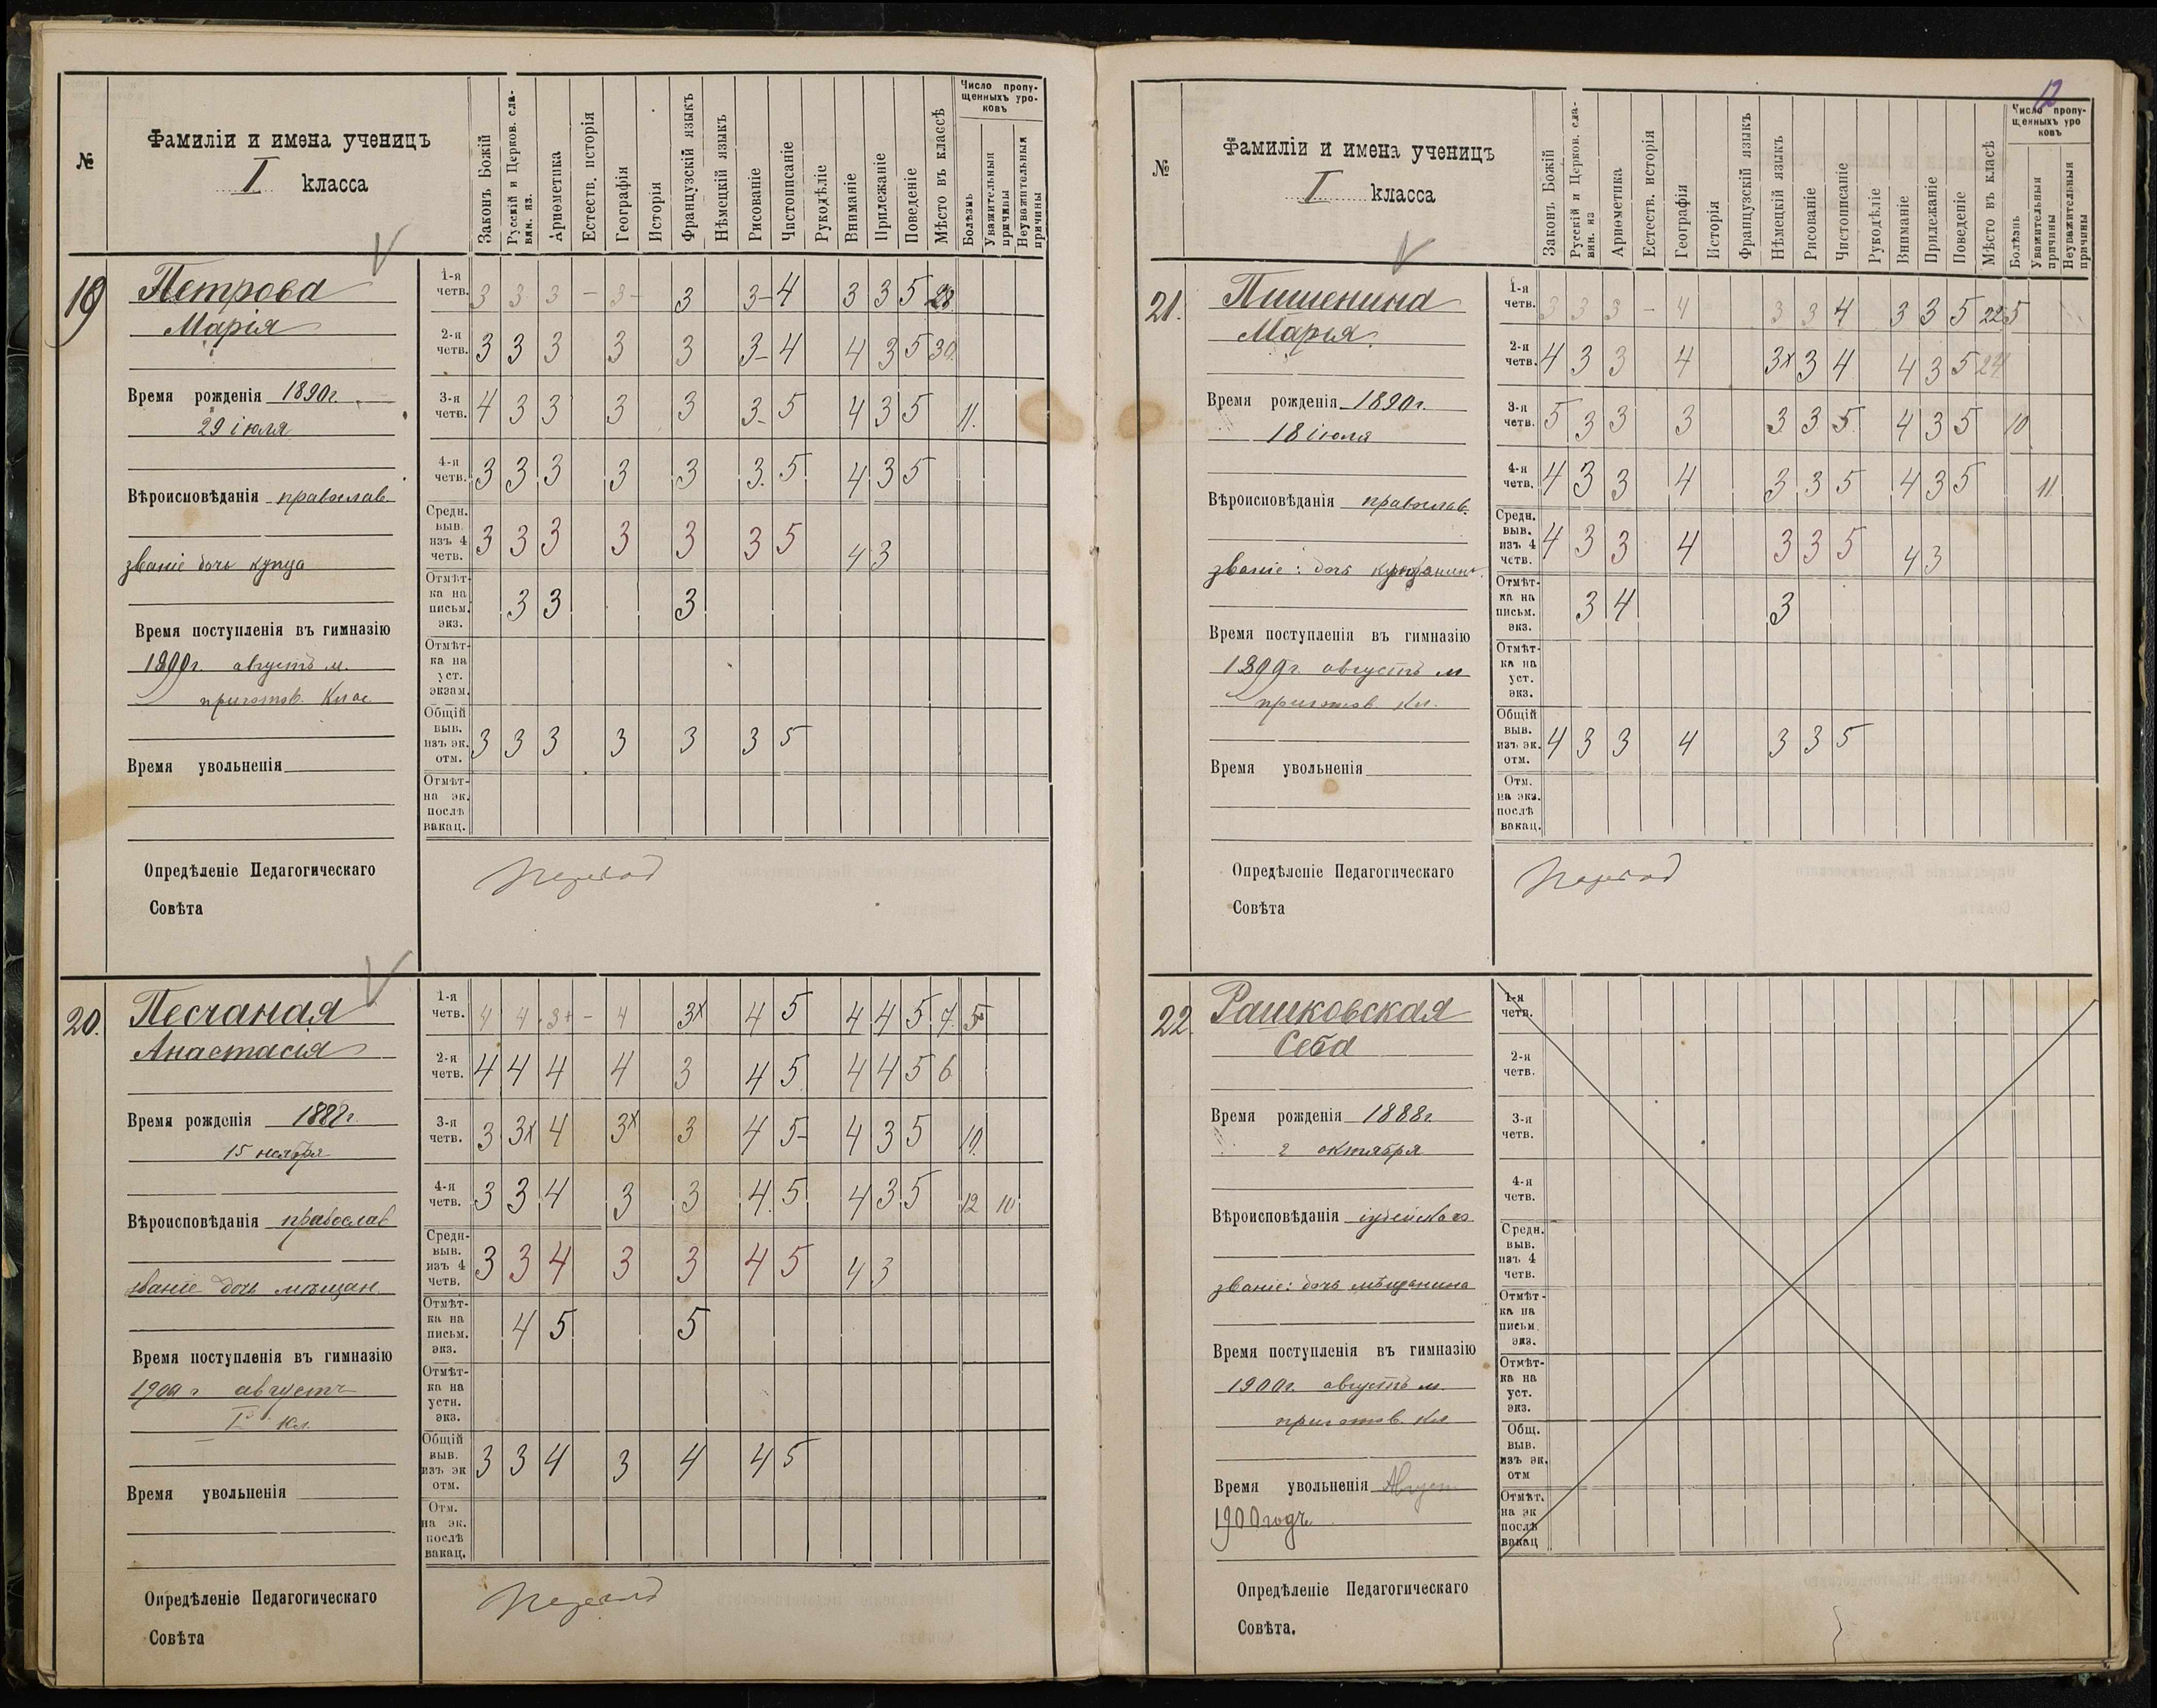 №
Фамиліи и имена ученицъ
I класса
Законъ Божій
Русскій и Церков. сла-
вян. яз.
Ариѳметика
Естеств. исторія
Географія
Исторія
Французскій языкъ
Нѣмецкій языкъ
Рисованіе
Чистописаніе
Рукодѣліе
Вниманіе
Прилежаніе
Поведеніе
Мѣсто въ классѣ
Число пропу-
щенныхъ уро-
ковъ
Болѣзнь
Уважительныя
причины
Неуважительныя
причины
19
Петрова
Марія
Время рожденія 1890г.
29 іюля
Вѣроисповѣданія православ.
званіе дочь купца
Время поступленія въ гимназію
1899г. августъ м.
приготов. Клас.
Время увольненія
1-я
четв. 3 3 3 – 3 – 3 3– 4 3 3 5 28
2-я
четв. 3 3 3 3 3 3– 4 4 3 5 30.
3-я
четв. 4 3 3 3 3 3– 5 4 3 5 11.
4-я
четв. 3 3 3 3 3 3. 5 4 3 5
Средн.
выв.
изъ 4
четв. 3 3 3 3 3 3 5 4 3
Отмѣт-
ка на
письм.
экз. 3 3 3
Отмѣт-
ка на
уст.
экзам.
Общій
выв.
изъ эк.
отм. 3 3 3 3 3 3 5
Отмѣт-
на эк.
послѣ
вакац.
Опредѣленіе Педагогическаго
Совѣта
20.
Песчаная
Анастасія
Время рожденія
15 ноября
Вѣроисповѣданія православ
званіе дочь мѣщан.
Время поступленія въ гимназію
1900 г августъ
I кл.
Время увольненія
1-я
четв. 4 4 3+ – 4 3х 4 5 4 4 5 7. 5
2-я
четв. 4 4 4 4 3 4 5 4 4 5 6
3-я
четв. 3 3х 4 3х 3 4 5– 4 3 5 10.
4-я
четв. 3 3 4 3 3 4. 5 4 3 5 12 10
Средн-
выв.
изъ 4
четв. 3 3 4 3 3 4 5 4 3
Отмѣт-
ка на
письм.
экз. 4 5 5
Отмѣт-
ка на
устн.
экз.
Общій
выв.
изъ эк
отм. 3 3 4 3 4 4 5
Отм.
на эк.
послѣ
вакац.
Опредѣленіе Педагогическаго
Совѣта
12
№
Фамиліи и имена ученицъ
I класса
Законъ Божій
Русскій и Церков. сла-
вян. яз
Ариѳметика
Естеств. исторія
Географія
Исторія
Французскій языкъ
Нѣмецкій языкъ
Рисованіе
Чистописаніе
Рукодѣліе
Вниманіе
Прилежаніе
Поведеніе
Мѣсто въ класѣ
Число пропу-
щенныхъ уро
ковъ
Болѣзнь
Уважительныя
причины
Неуважительныя
причины
21.
Пишенина
Марья.
Время рожденія 1890г.
18 іюля
Вѣроисповѣданія православ.
званіе: дочь
Время поступленія въ гимназію
1899г. августъ м
приготов. Кл.
Время увольненія
1-я
четв. 3 3 3 – 4 3 3 4 3 3 5 22 5
2-я
четв. 4 3 3 4 3х 3 4 4 3 5 24
3-я
четв. 5 3 3 3 3 3 5. 4 3 5 10
4-я
четв. 4 3 3 4 3 3 5 4 3 5 11.
Средн.
выв.
изъ 4
четв. 4 3 3 4 3 3 5 4 3
Отмѣт-
ка на
письм.
экз. 3 4 3
Отмѣт-
ка на
уст.
экз.
Общій
выв.
изъ эк.
отм. 4 3 3 4 3 3 5
Отм.
на экз.
послѣ
вакац.
Опредѣленіе Педагогическаго
Совѣта
22
Рашковская
Себа
Время рожденія 1888г.
2 октября
Вѣроисповѣданія іудейскаго
званіе: дочь мѣщанина
Время поступленія въ гимназію
1900г. августъ м.
приготов. кл.
Время увольненія Август
1900годъ.
1-я
четв.
2-я
четв.
3-я
четв.
4-я
четв.
Средн.
выв.
изъ 4
четв.
Отмѣт-
ка на
письм
экз.
Отмѣт-
ка на
уст.
экз.
Общ.
выв.
изъ эк.
отм
Отмѣт.
на эк
послѣ
вакац
Опредѣленіе Педагогическаго
Совѣта.